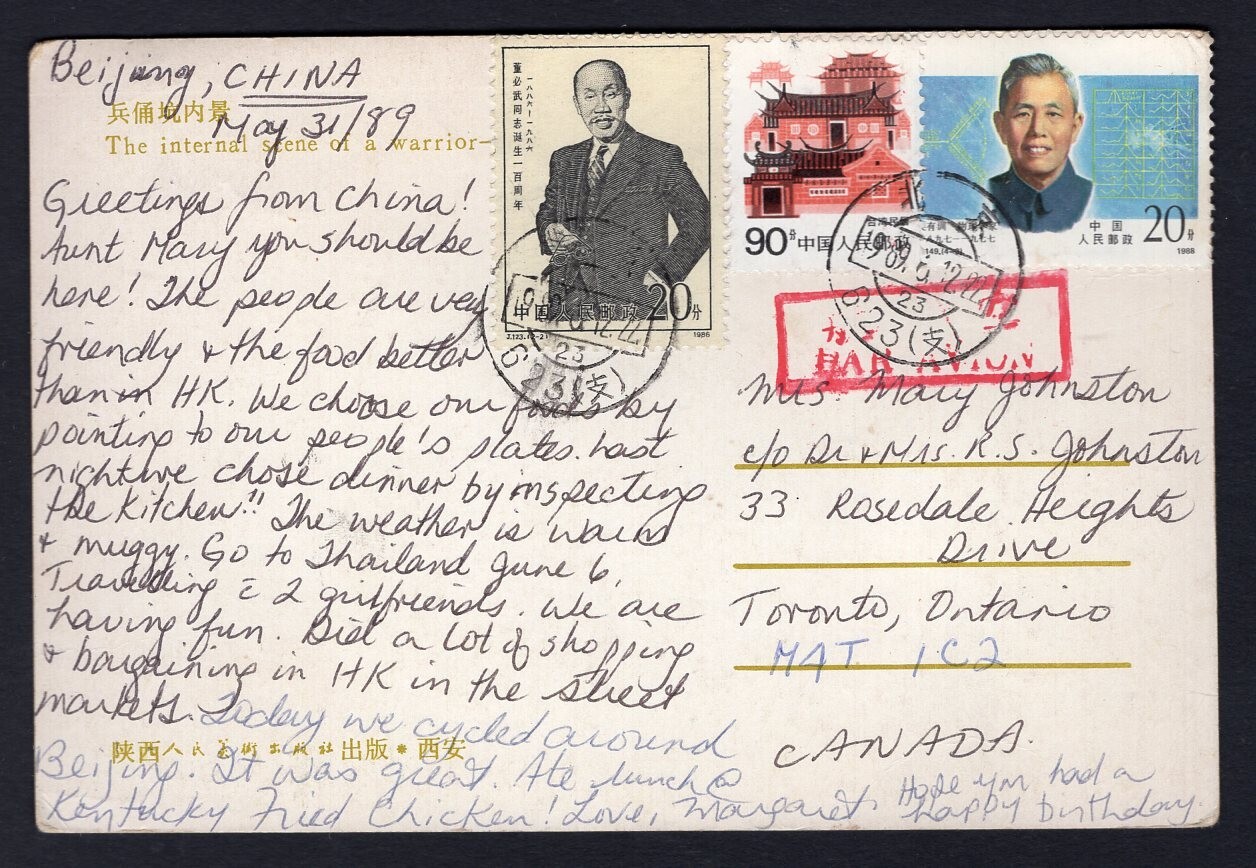 Beijing, CHINA
May 31/89
兵俑坑内景
The internal scene of a warrior-
Greetings from China!
Aunt Mary you should be
here! The people are very
friendly & the food better
than in HK. We choose our foods by
pointing to our people's plates. Last
night we chose dinner by inspecting
the kitchen!! The weather is warm
& muggy. Go to Thailand June 6.
Travelling c̄ 2 girlfriends. We are
having fun. Did a lot of shopping
& bargaining in HK in the street
markets. Today we cycled around
陕西人民美术出版社出版 * 西安
Beijing. It was great. Ate lunch @
Kentucky Fried Chicken! Love, Margaret.
Hope you had a
happy birthday.
董必武同志诞生一百周年
一八八六—一九八六
中国人民邮政 20分
J.123.(2-2) 1986
台湾民居
90分 中国人民邮政
一八九七—一九七七
J149.(4-3)
中国
人民邮政 20分
1988
北
1989.6.12.22
23
623(支)
23
623(支)
PAR AVION
Mrs. Mary Johnston
c/o Dr & Mrs. R.S. Johnston
33 Rosedale Heights
Drive
Toronto, Ontario
M4T 1C2
CANADA.